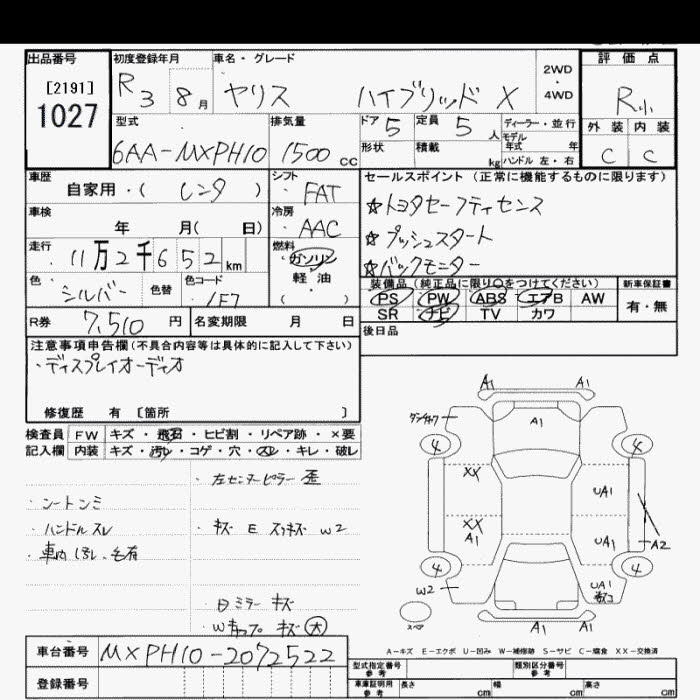 出品番号
[2191]
1027
初度登録年月
R3 8月
車名・グレード
ヤリス ハイブリッド X
2WD
・
4WD
評価点
R小
外装 内装
C C
型式
6AA-MXPH10
排気量
1500 cc
ドア 5
形状
定員 5 人
積載 kg
ディーラー・並行
モデル年式 年
ハンドル 左・右
車歴
自家用・( レンタ )
車検
年 月( 日)
走行
11万2千652 km
色
シルバー
色替
色コード
1F7
シフト
FAT
冷房
AAC
燃料
ガソリン
軽油
( )
セールスポイント (正常に機能するものに限ります)
☆トヨタセーフティセンス
☆プッシュスタート
☆バックモニター
装備品 (純正品に限り○をつけてください)
PS PW ABS エアB AW
SR ナビ TV カワ
新車保証書
有・無
後日品
R券 7,510 円
名変期限 月 日
注意事項申告欄(不具合内容等は具体的に記入して下さい)
・ディスプレイオーディオ
修復歴 有 〔箇所 〕
検査員記入欄
FW キズ・飛石・ヒビ割・リペア跡・×要
内装 キズ・汚レ・コゲ・穴・スレ・キレ・破レ
・シートシミ
・ハンドルスレ
・車内汚レ、毛有
・左センターピラー歪
・キズ E スリキズ W2
・日ミラーキズ
・Wキャップ キズ(大)
A1 A1
A1
4 4
XX
UA1
XX
A1
UA1
A2
4 4
W2
UA1
スペア
A1 A1
A-キズ E-エクボ U-凹み W-補修跡 S-サビ C-腐食 XX-交換済
車台番号 MXPH10-2072522
登録番号
型式指定番号 参考
類別区分番号 参考
車庫証明用 参考
長さ cm
幅 cm
高さ cm